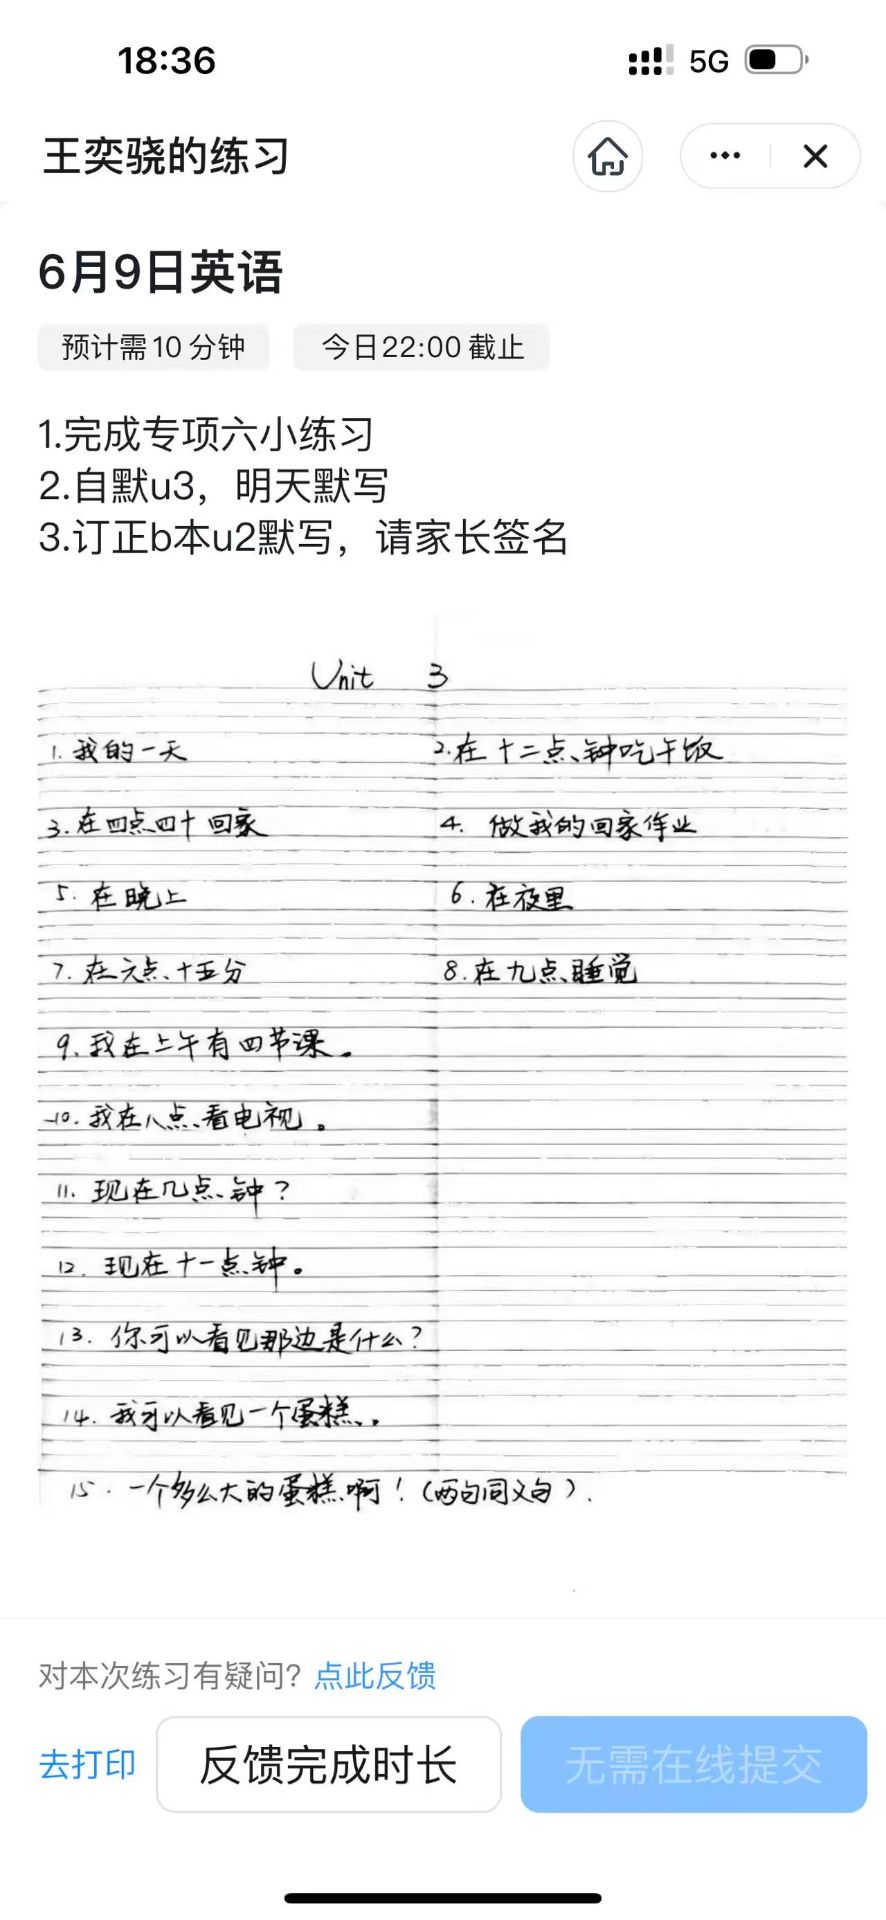 18:36
5G
王奕骁的练习
6月9日英语
预计需10分钟 今日22:00截止
1.完成专项六小练习
2.自默u3，明天默写
3.订正b本u2默写，请家长签名
Unit 3
1. 我的一天 2.在十二点钟吃午饭
3.在四点四十回家 4. 做我的回家作业
5. 在晚上 6.在夜里
7. 在六点十五分 8.在九点睡觉
9.我在上午有四节课。
10.我在八点看电视。
11.现在几点钟？
12.现在十一点钟。
13.你可以看见那边是什么？
14.我可以看见一个蛋糕。
15.一个多么大的蛋糕啊！(两句同义句).
对本次练习有疑问？点此反馈
去打印 反馈完成时长 无需在线提交